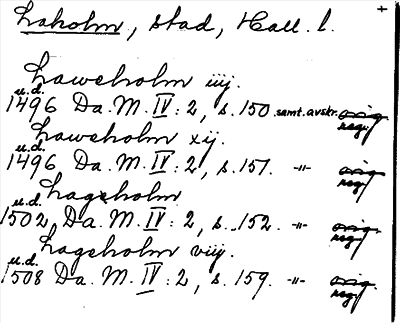 Laholm, stad, Hall. l. +
Laweholm iiij.
u.d.
1496 Da. M. IV: 2, s. 150 samt. avskr. orig
regi
Laweholm xij.
u.d.
1496 Da. M. IV: 2, s. 151. -"- orig
reg
Lageholm
u.d.
1502 Da. M. IV: 2, s. 152. -"- orig.
reg
Lageholm viij.
u.d.
1508 Da. M. IV: 2, s. 159. -"- orig.
reg